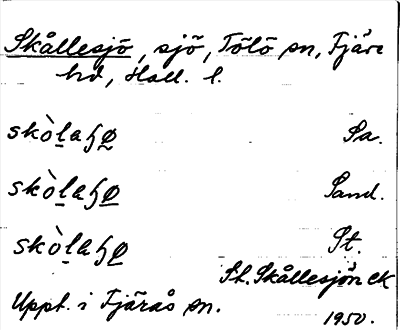 Skållesjö, sjö, Tölö sn, Fjäre
hd, Hall. l.
skò̱laɧø̰ Sa.
skò̱laɧø̱ Sand.
skò̱laɧø̱ St.
St. Skållesjön ek
Uppt. i Fjärås sn.
1950.